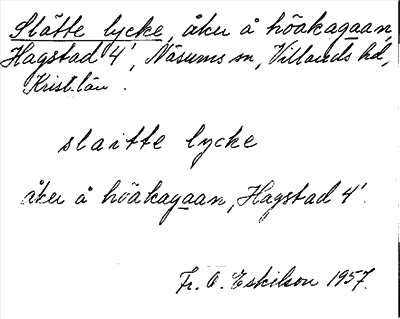 Slätte lycke, åker å höäkagaan,
Hagstad 4', Näsums sn, Villands hd,
Krist. län.
slaitte lycke
åker å höäkagaan, Hagstad 4'.
Fr. O. Eskilson 1957.